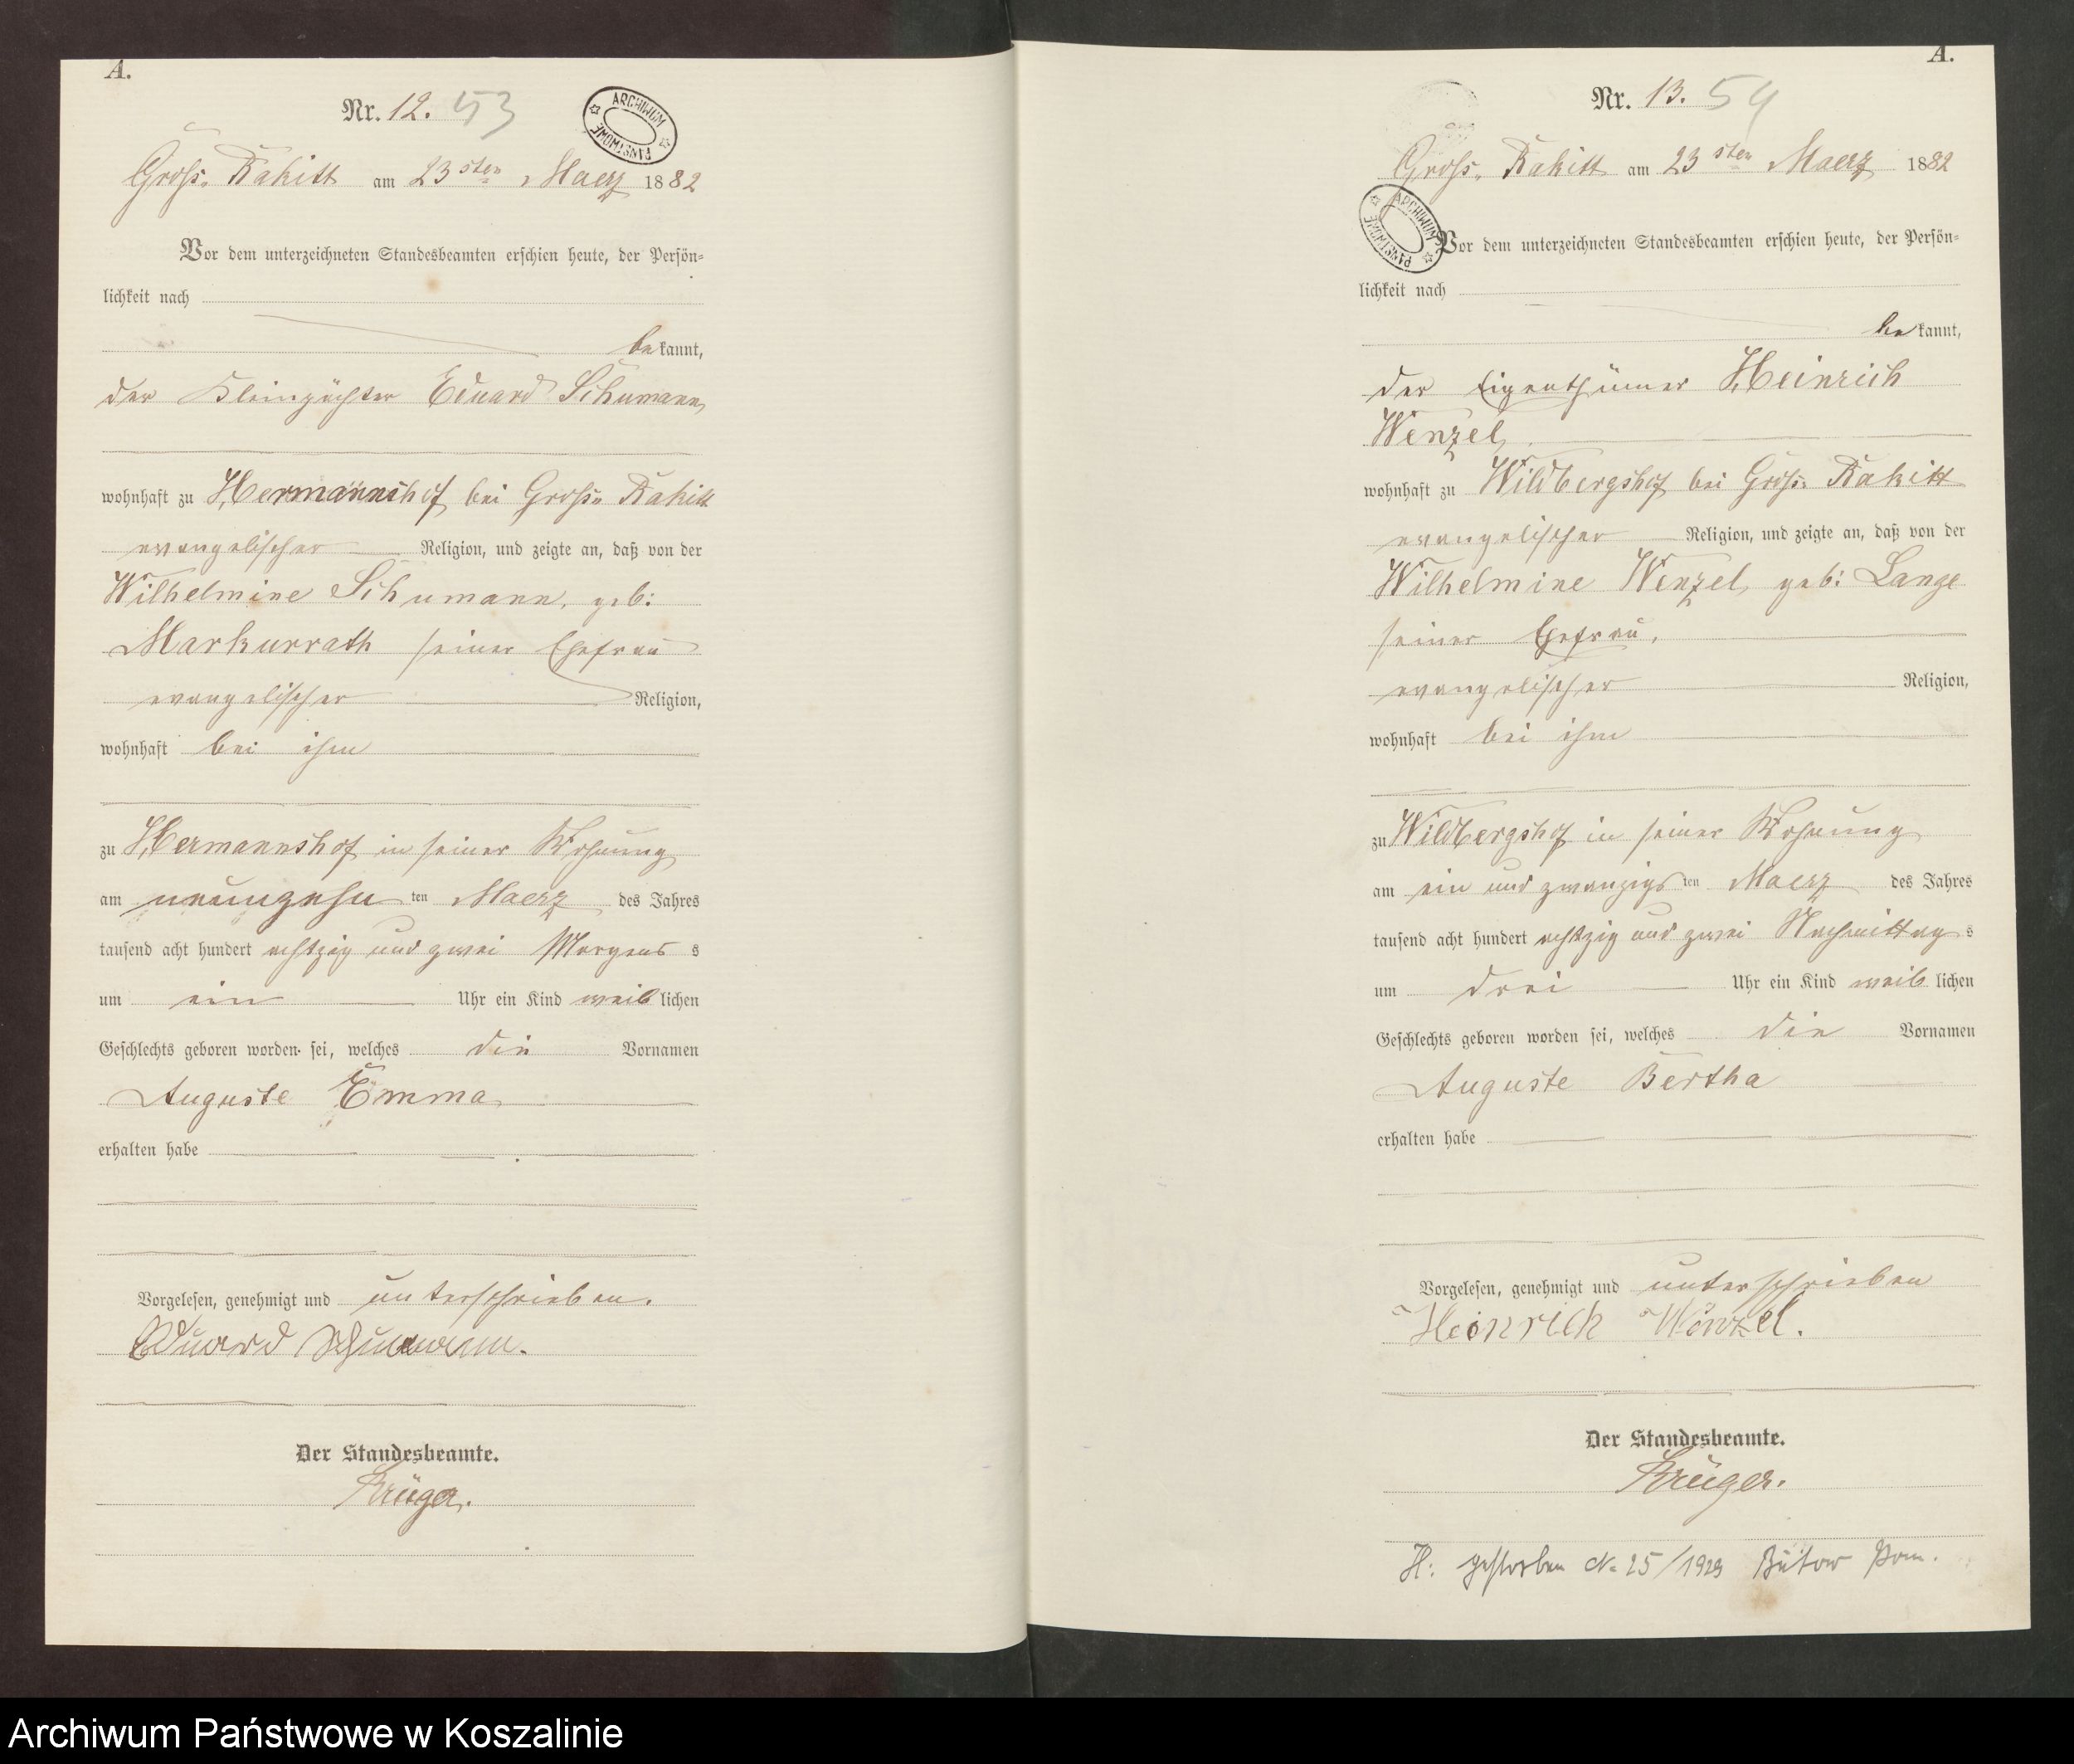 A.
Nr. 12. 53
ARCHIWUM PAŃSTWOWE
Gross-Rakitt am 23sten Maerz 1882
Vor dem unterzeichneten Standesbeamten erschien heute, der Persön-
lichkeit nach
be kannt,
der Kleinpächter Eduard Schumann
wohnhaft zu Hermannshof bei Gross-Rakitt
evangelischer Religion, und zeigte an, daß von der
Wilhelmine Schumann, geb:
Markurrath seiner Ehefrau
evangelischer Religion,
wohnhaft bei ihm
zu Hermannshof in seiner Wohnung
am neunzehn ten Maerz des Jahres
tausend acht hundert achtzig und zwei Morgens s
um ein Uhr ein Kind weib lichen
Geschlechts geboren worden sei, welches die Vornamen
Auguste Emma
erhalten habe
Vorgelesen, genehmigt und unterschrieben.
Eduard Schumann.
Der Standesbeamte.
Krüger.
A.
Nr. 13. 54
Gross-Rakitt am 23sten Maerz 1882
ARCHIWUM PAŃSTWOWE
Vor dem unterzeichneten Standesbeamten erschien heute, der Persön-
lichkeit nach
be kannt,
der Eigenthümer Heinrich
Wenzel,
wohnhaft zu Wildbergshof bei Gross-Rakitt
evangelischer Religion, und zeigte an, daß von der
Wilhelmine Wenzel, geb: Lange
seiner Ehefrau,
evangelischer Religion,
wohnhaft bei ihm
zu Wildbergshof in seiner Wohnung
am ein und zwanzigs ten Maerz des Jahres
tausend acht hundert achtzig und zwei Nachmittag s
um drei Uhr ein Kind weib lichen
Geschlechts geboren worden sei, welches die Vornamen
Auguste Bertha
erhalten habe
Vorgelesen, genehmigt und unterschrieben
Heinrich Wenzel.
Der Standesbeamte.
Krüger.
H: gestorben N. 25/1929 Bütow Pom.
Archiwum Państwowe w Koszalinie